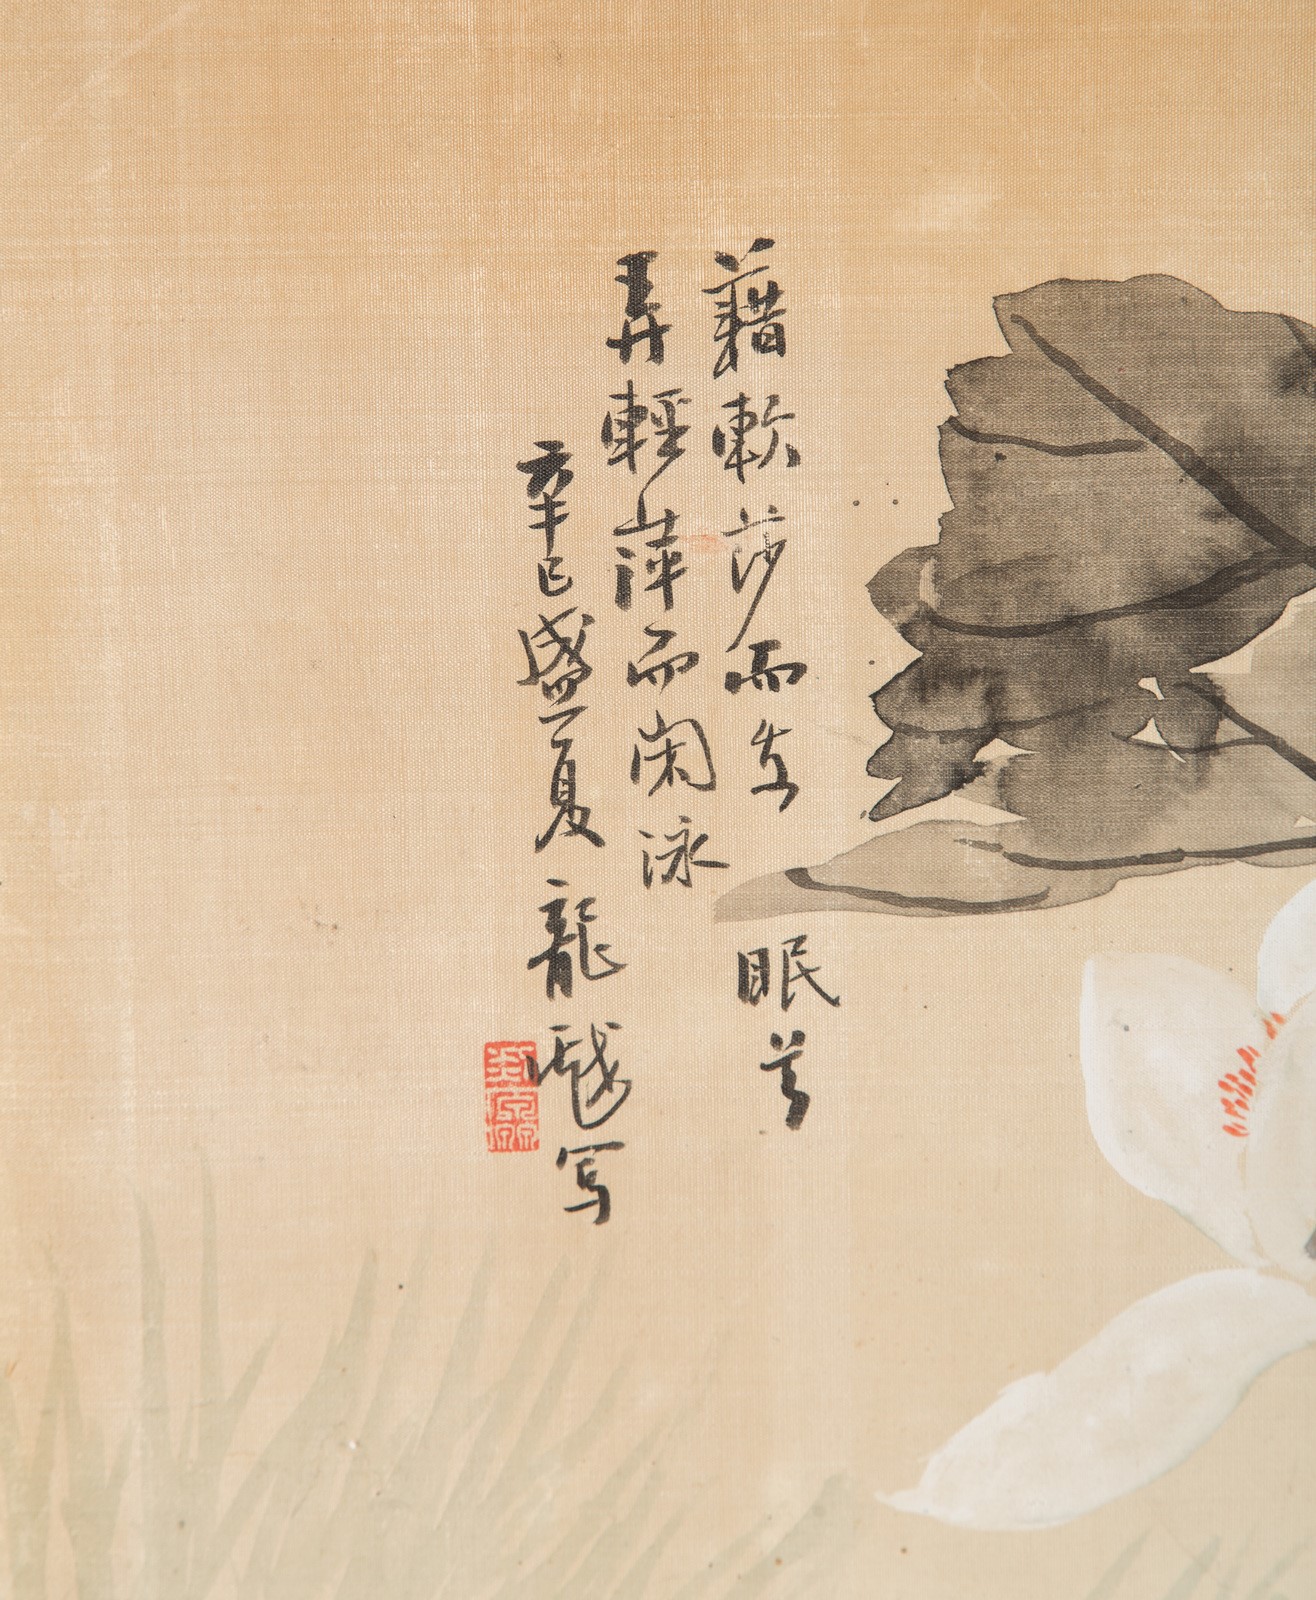 藉軟莎而安眠兮
弄輕萍而閑泳
辛巳盛夏龍写